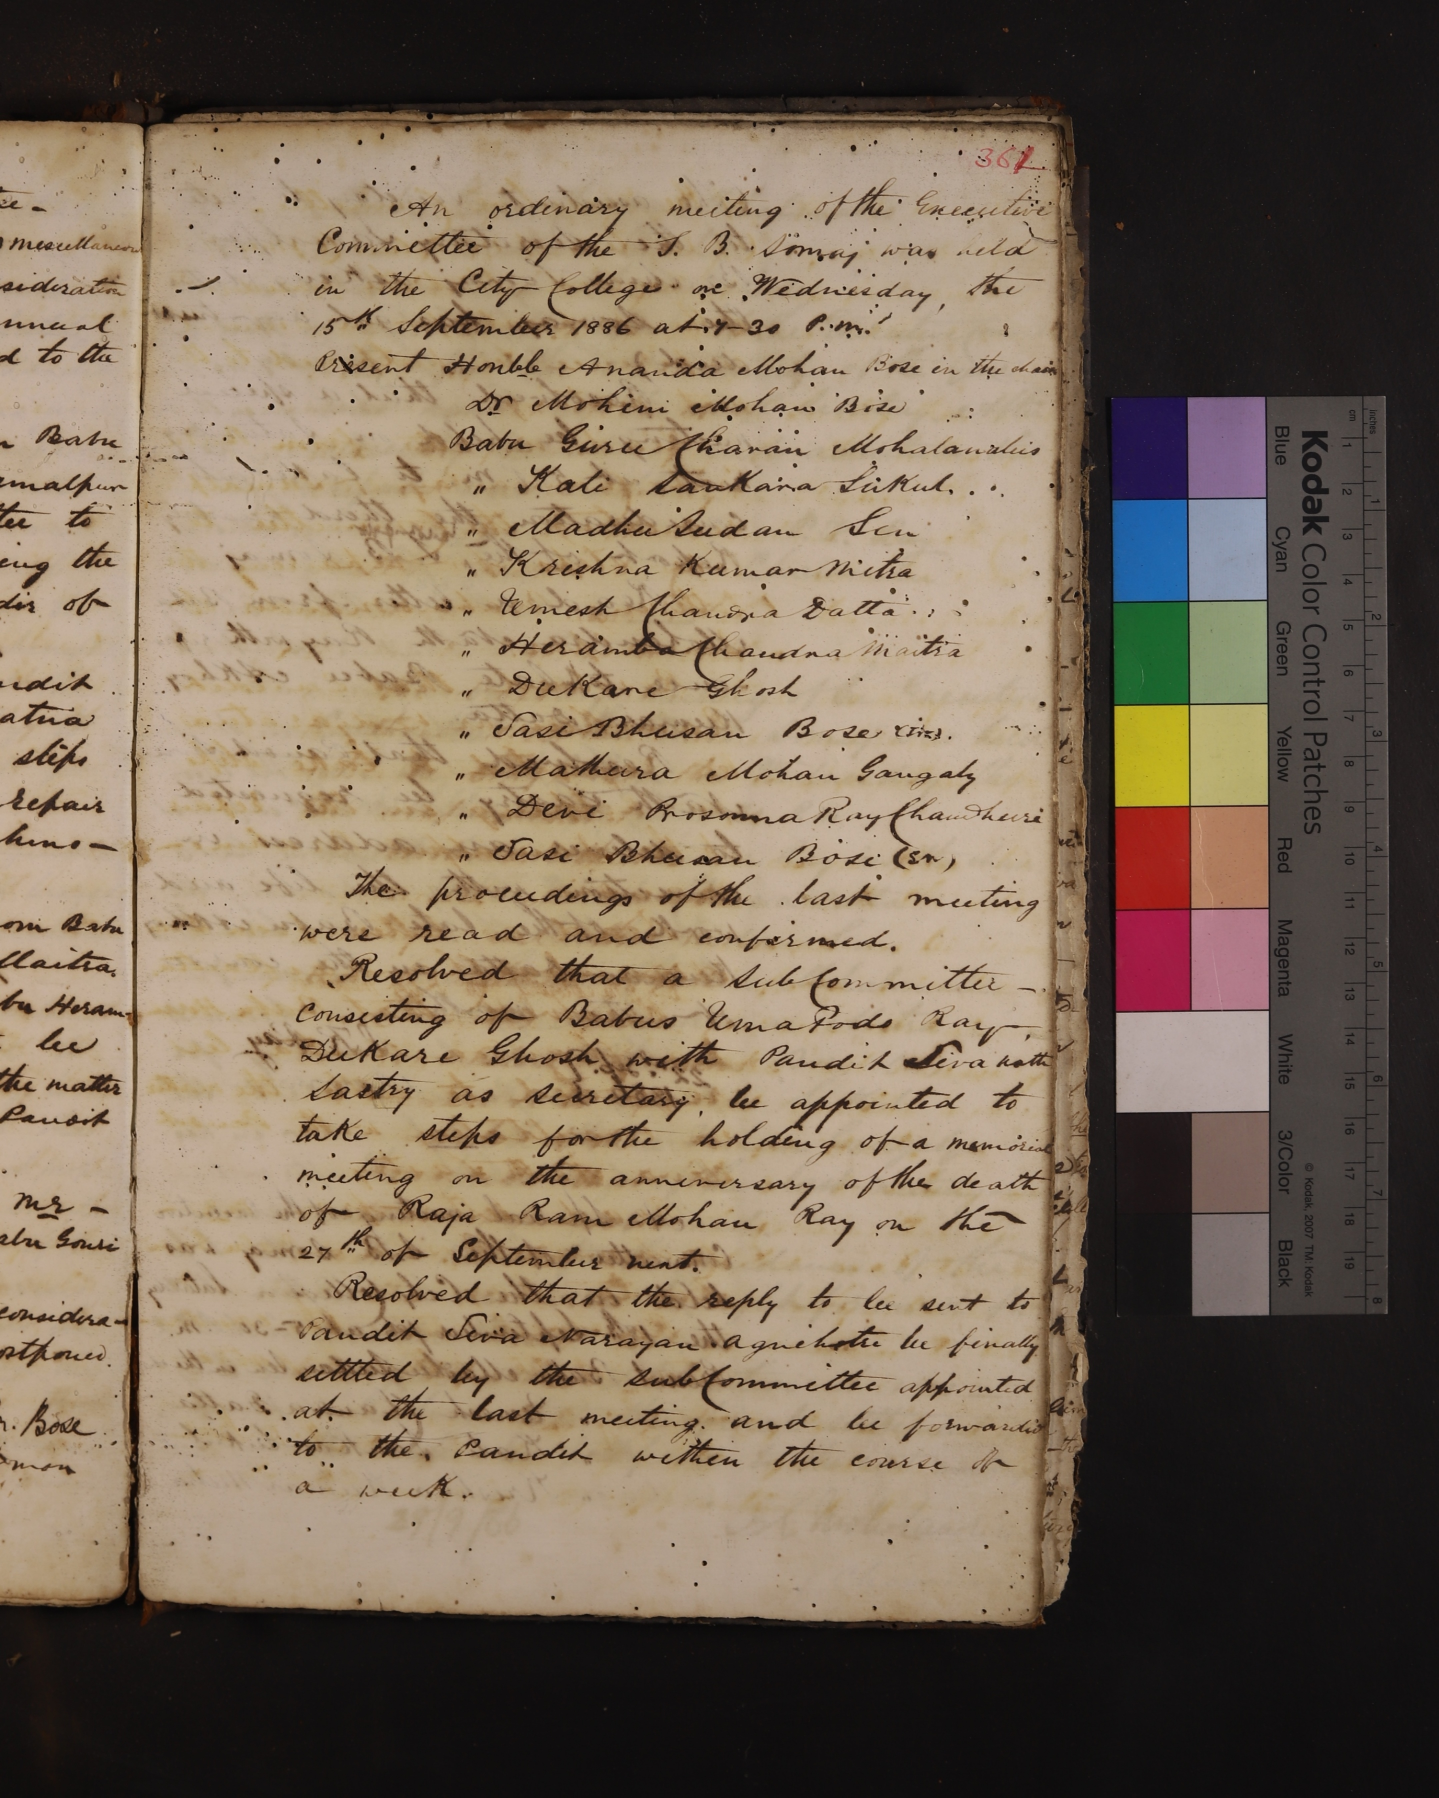 se-
miscellaneous
sideration
nnual
d to the
Babu
amalpur
tee to
ing the
dir of
ndit
atna
steps
repair
hmo-
om Babu
Maitra.
bu Heram-
be
the matter
Pandit
Mr -
abu Gouri
considera-
ostponed.
r. Bose
361
An ordinary meeting of the Executive
Committee of the S. B. Somaj was held
in the City College on Wednesday, the
15th September 1886 at 7-30 P.m.
Present Honble Ananda Mohan Bose in the chair
Dr Mohini Mohan Bose
Babu Guru Charan Mohalanabis
" Kali Sankara Sukul
" Madhu Sudan Sen
" Krishna Kumar Mitra
" Umesh Chandra Datta
" Heramba Chandra Maitra
" DuKari Ghosh
" Sasi Bhusan Bose
" Mathura Mohan Gangaly
" Devi Prosonna Ray Chaudhuri
" Sasi Bhusan Bose (Sr)
The proceedings of the last meeting
were read and confirmed.
Resolved that a sub Committee -
consisting of Babus Uma Podo Ray,
DuKari Ghosh with Pandit Siva nath
Sastry as secretary, be appointed to
take steps for the holding of a memorial
meeting on the anniversary of the death
of Raja Ram Mohan Ray on the
27th of September next.
Resolved that the reply to be sent to
Pandit Siva Narayan Agnihotri be finally
settled by the sub Committee appointed
at the last meeting and be forwarded
to the Pandit within the course of
a week.
Kodak Color Control Patches
Blue Cyan Green Yellow Red Magenta White 3/Color Black
© Kodak, 2007 TM: Kodak
inches 1 2 3 4 5 6 7 8
cm 1 2 3 4 5 6 7 8 9 10 11 12 13 14 15 16 17 18 19